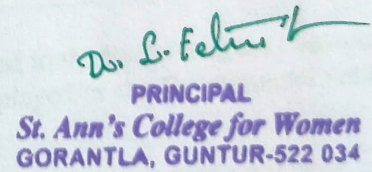 Dr. L.
PRINCIPAL
St. Ann's College for Women
GORANTLA, GUNTUR-522 034